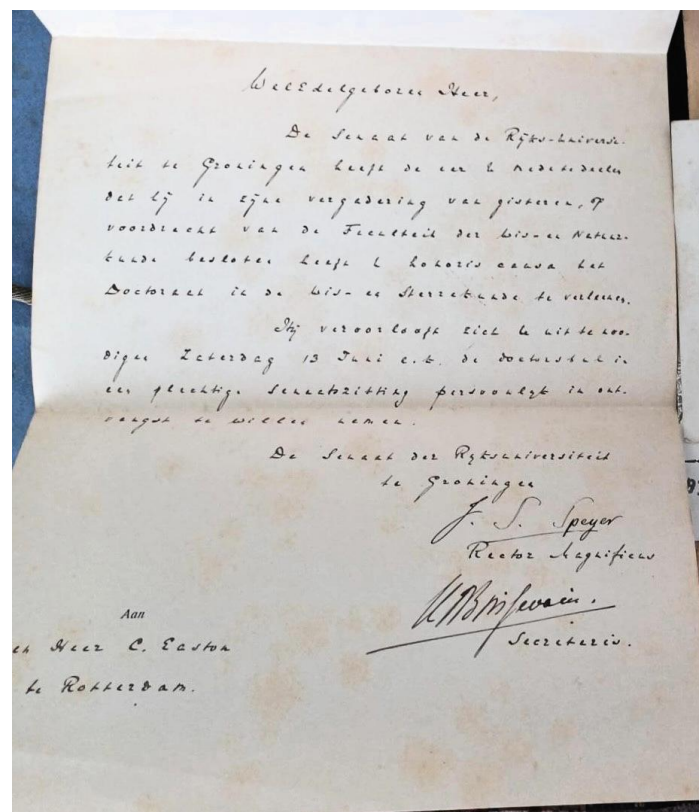 WelEdelgeboren Heer,
De Senaat van de Rijks-universi-
teit te Groningen heeft de eer U mededeelen
dat hij in zijne vergadering van gisteren, op
voordracht van de Faculteit der Wis- en Natuur-
kunde besloten heeft U honoris causa het
Doctoraat in de Wis- en Sterrekunde te verleenen.
Hij veroorlooft zich U uit te noo-
digen Zaterdag 13 Juni e.k. de doctorsbul in
een plechtige Senaatszitting persoonlijk in ont-
vangst te willen nemen.
De Senaat der Rijksuniversiteit
te Groningen
J. S. Speyer
Rector Magnificus
Boissevain.
Secretaris.
Aan
en Heer C. Easton
te Rotterdam.